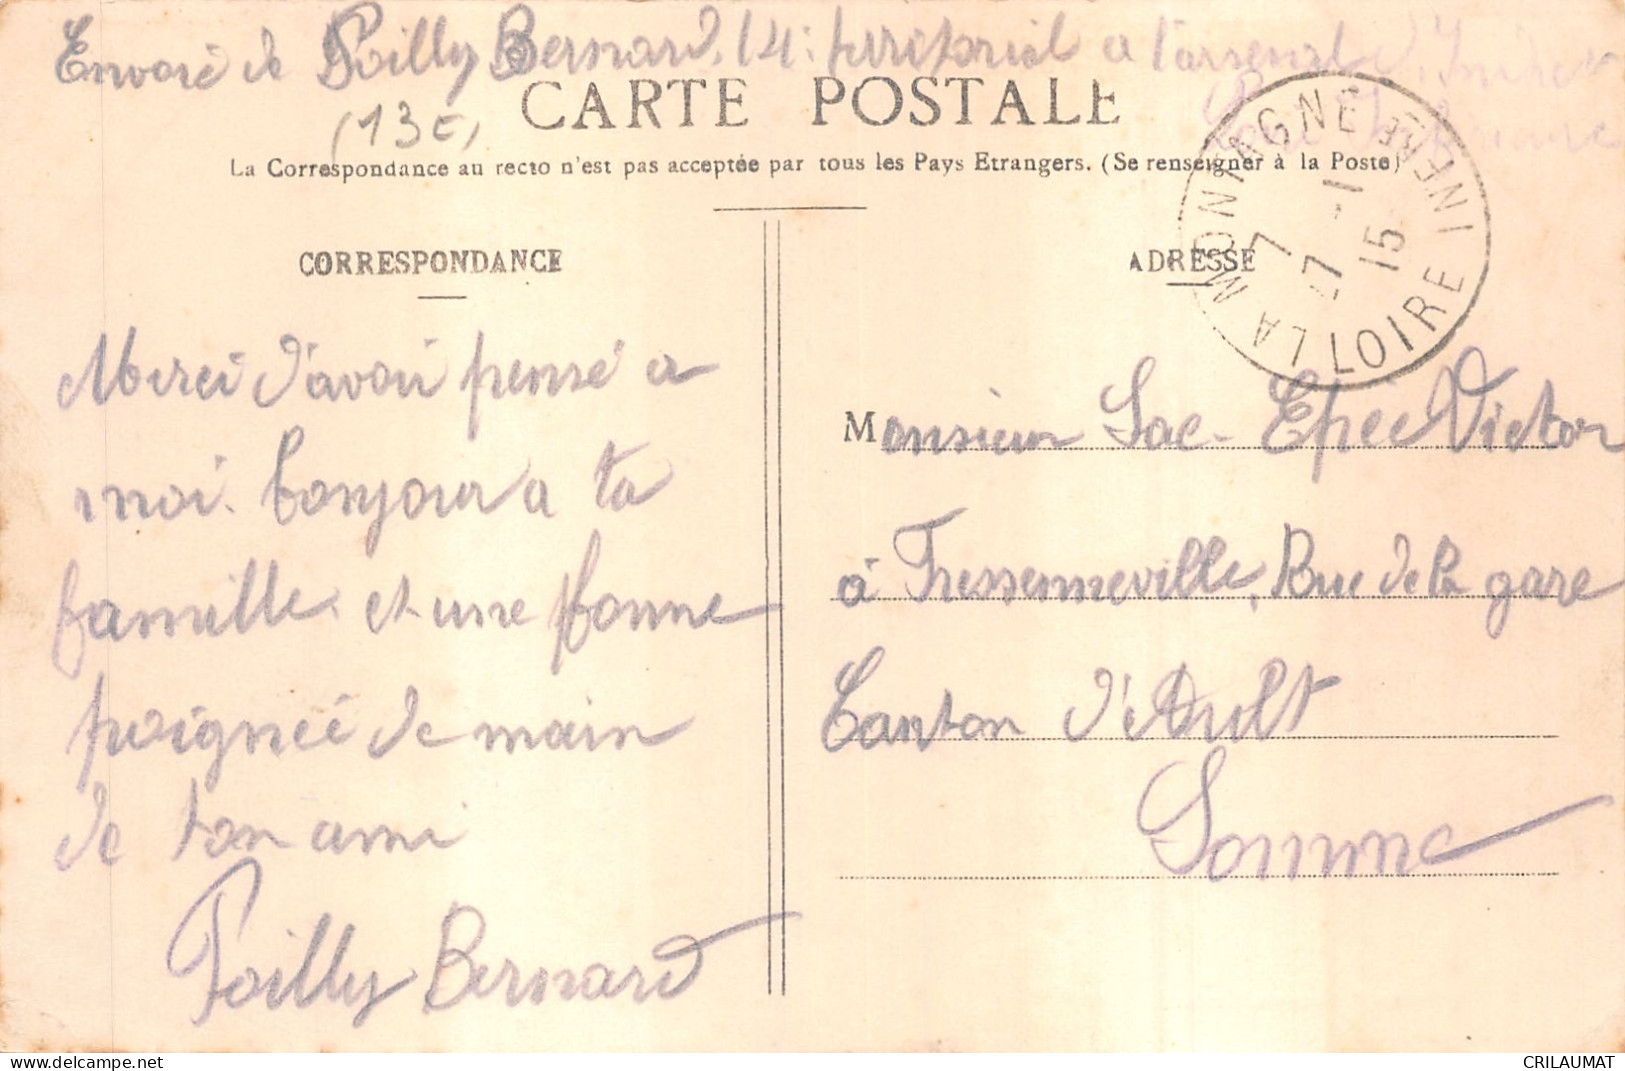 Envoie de Poilly Bernard. 14e territorial a l'arsenal d'Indret
Loire Inférieure
(13E)
CARTE POSTALE
La Correspondance au recto n'est pas acceptée par tous les Pays Etrangers. (Se renseigner à la Poste)
LA MONTAGNE
LOIRE INFÉRE
7
7 -1
15
CORRESPONDANCE
Merci d'avoir pensé a
moi. bonjour a ta
famille. et une bonne
poignéé de main
de ton ami
Poilly Bernard
ADRESSE
Monsieur Sac-Epée Victor
à Fressenneville, Rue de la gare
Canton d'Ault
Somme
CRILAUMAT